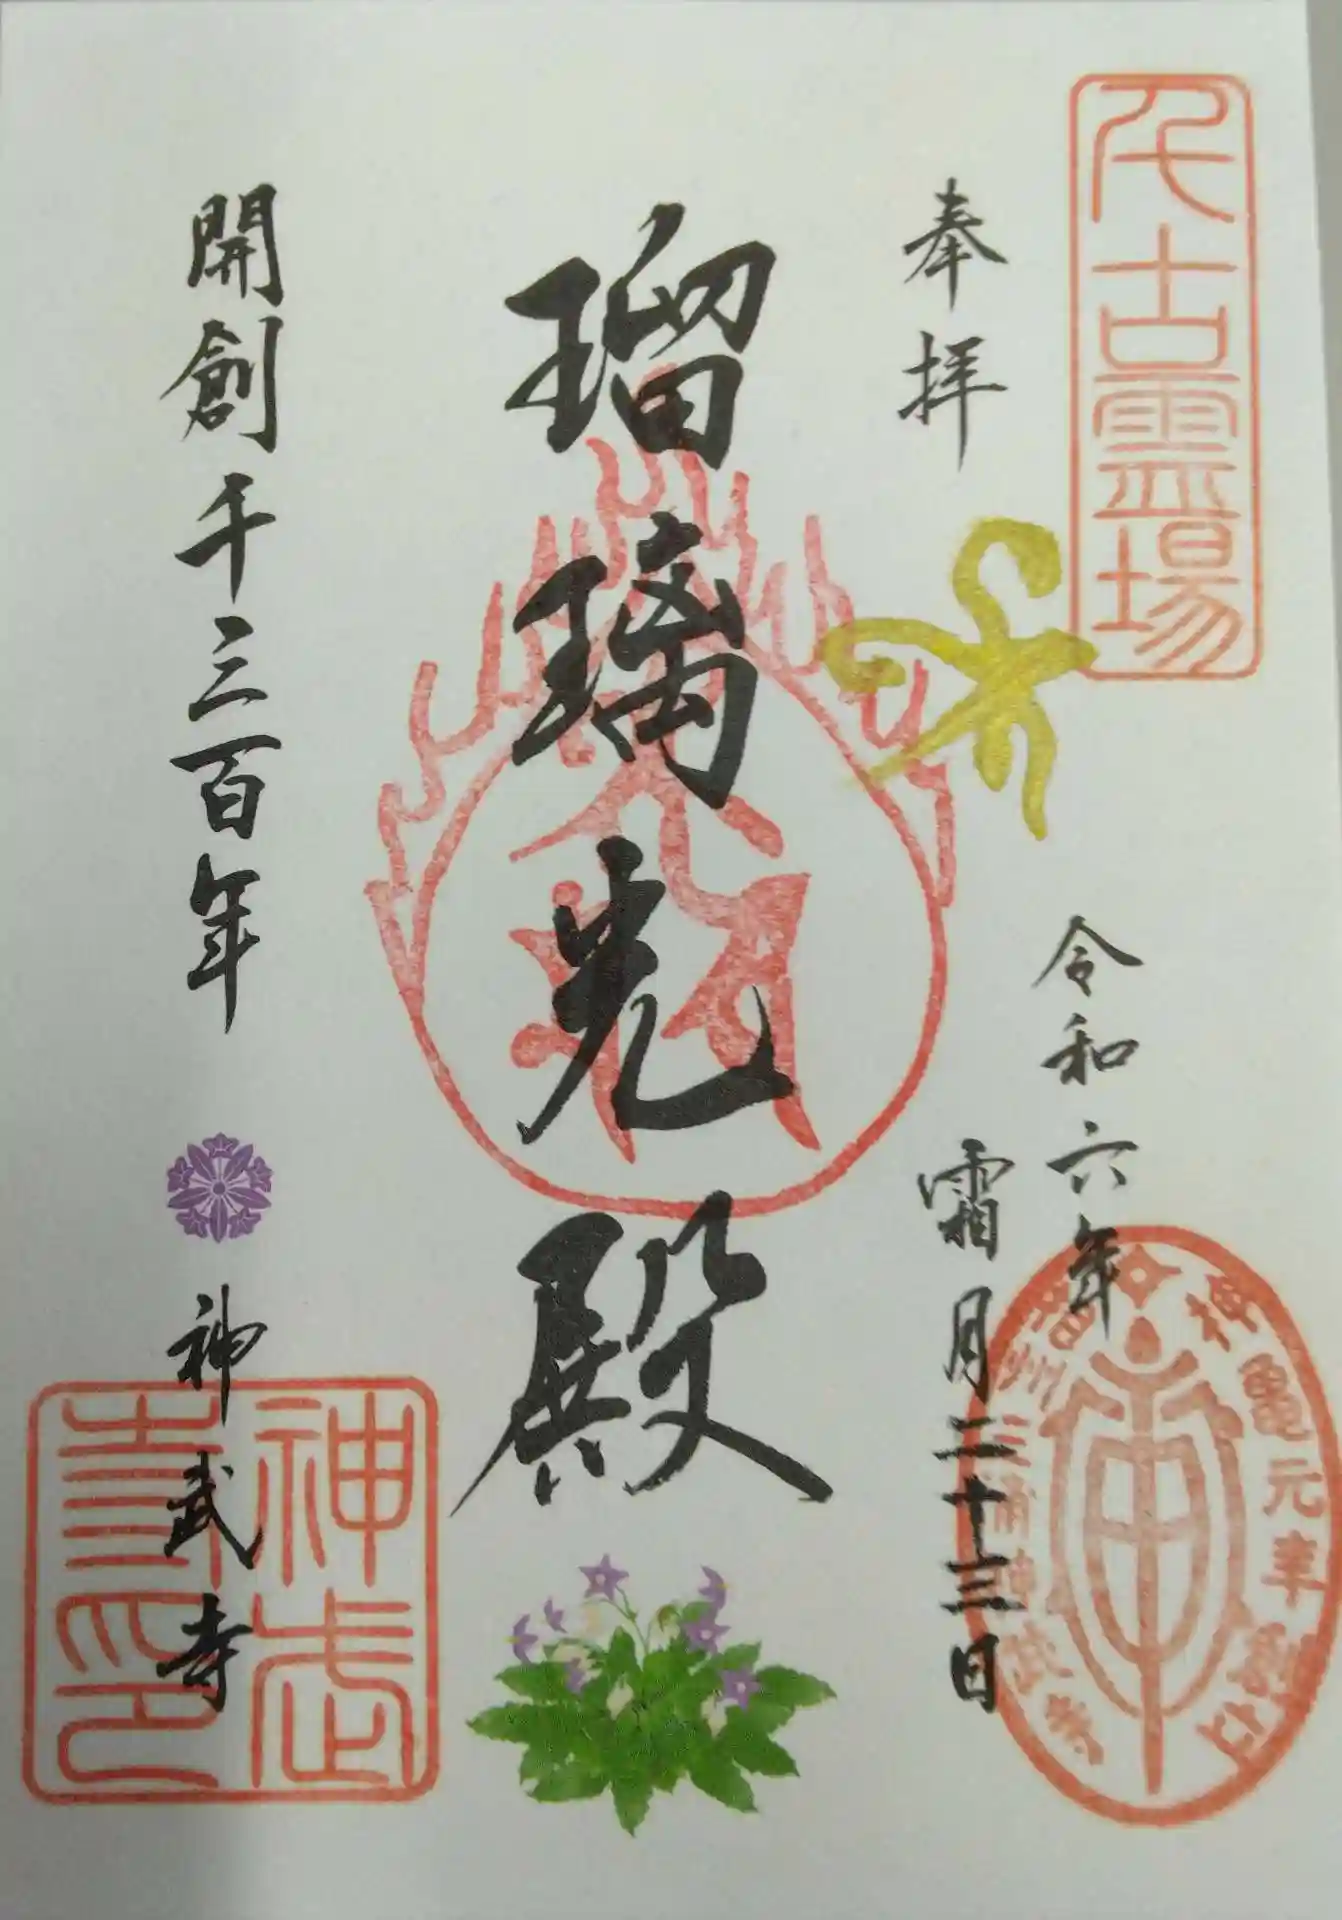 奉拝
令和六年
霜月二十三日
瑠璃光殿
開創千三百年
神武寺
古霊場
神武寺印
神亀元年創立
相州三浦神武寺